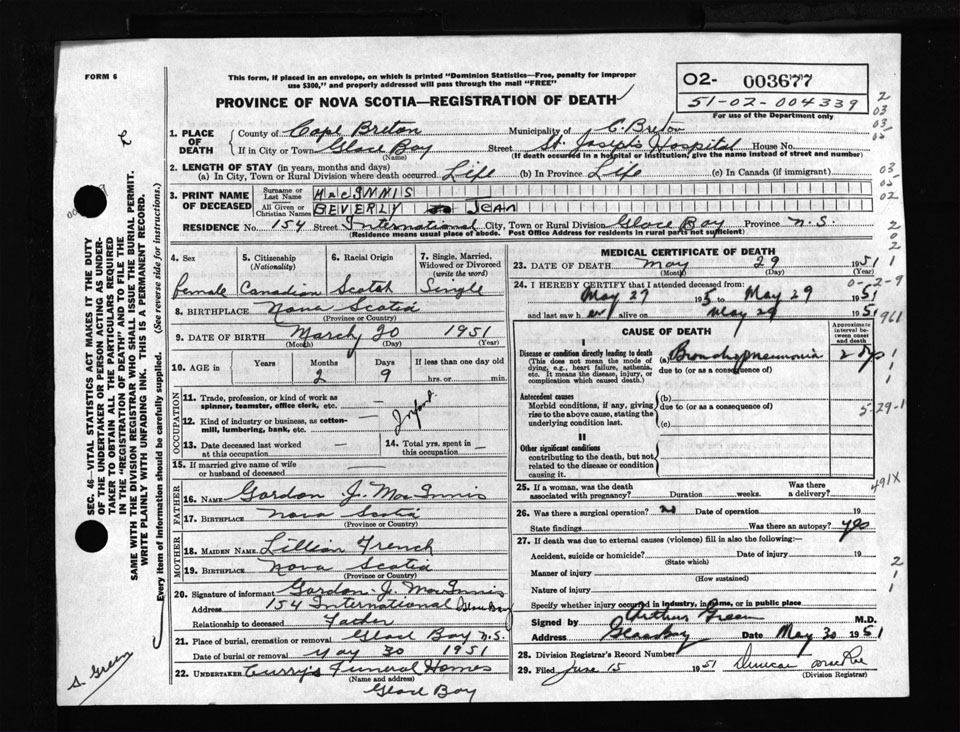 FORM 6
This form, if placed in an envelope, on which is printed "Dominion Statistics—Free, penalty for improper
use $300," and properly addressed will pass through the mail "FREE"
PROVINCE OF NOVA SCOTIA—REGISTRATION OF DEATH
02- 003677
51-02-004339
For use of the Department only
1. PLACE OF DEATH
County of Cape Breton Municipality of C. Breton
If in City or Town Glace Bay Street St. Joseph's Hospital House No.
(Name) (If death occurred in a hospital or institution, give the name instead of street and number)
2. LENGTH OF STAY (in years, months and days)
(a) In City, Town or Rural Division where death occurred Life (b) In Province Life (c) In Canada (if immigrant)
3. PRINT NAME OF DECEASED
Surname or Last Name MacINNIS
All Given or Christian Names BEVERLY JEAN
RESIDENCE No. 154 Street International City, Town or Rural Division Glace Bay Province N.S.
(Residence means usual place of abode. Post Office Address for residents in rural parts not sufficient)
4. Sex
female
5. Citizenship
(Nationality)
Canadian
6. Racial Origin
Scotch
7. Single, Married,
Widowed or Divorced
(write the word)
Single
8. BIRTHPLACE Nova Scotia
(Province or Country)
9. DATE OF BIRTH March 20 1951
(Month) (Day) (Year)
10. AGE in Years Months Days If less than one day old
2 9 hrs. or min.
OCCUPATION
11. Trade, profession, or kind of work as
spinner, teamster, office clerk, etc. —
12. Kind of industry or business, as cotton-
mill, lumbering, bank, etc.
13. Date deceased last worked
at this occupation —
14. Total yrs. spent in
this occupation —
15. If married give name of wife
or husband of deceased —
FATHER
16. Name Gordon J. MacInnis
17. BIRTHPLACE Nova Scotia
(Province or Country)
MOTHER
18. MAIDEN NAME Lillian French
19. BIRTHPLACE Nova Scotia
(Province or Country)
20. Signature of informant Gordon J. MacInnis
Address 154 International Glace Bay
Relationship to deceased Father
21. Place of burial, cremation or removal Glace Bay N.S.
Date of burial or removal May 30 1951
22. UNDERTAKER Curry's Funeral Homes
(Name and address)
Glace Bay
MEDICAL CERTIFICATE OF DEATH
23. DATE OF DEATH May 29 1951
(Month) (Day) (Year)
24. I HEREBY CERTIFY that I attended deceased from:
May 27 195 to May 29 1951
and last saw her alive on May 29 1951
CAUSE OF DEATH
Approximate
interval be-
tween onset
and death
I
Disease or condition directly leading to death
(This does not mean the mode of
dying, e.g., heart failure, asthenia,
etc. It means the disease, injury, or
complication which caused death.)
(a) Bronchopneumonia 2 dys
due to (or as a consequence of)
Antecedent causes
Morbid conditions, if any, giving
rise to the above cause, stating the
underlying condition last.
(b)
due to (or as a consequence of)
(c)
II
Other significant conditions
contributing to the death, but not
related to the disease or condition
causing it.
25. If a woman, was the death
associated with pregnancy? Duration weeks. Was there
a delivery?
26. Was there a surgical operation? no Date of operation 19
State findings Was there an autopsy? yes
27. If death was due to external causes (violence) fill in also the following:—
Accident, suicide or homicide? Date of injury 19
(State which)
Manner of injury
(How sustained)
Nature of injury
Specify whether injury occurred in industry, in home, or in public place
Signed by Arthur Green M.D.
Address Glace Bay Date May 30 1951
28. Division Registrar's Record Number
29. Filed June 15 1951 Duncan MacRae
(Division Registrar)
2
03
03
02
2
0
2
0-2-9
961
1
1
1
5-29-1
491X
2
1
1
SEC. 46—VITAL STATISTICS ACT MAKES IT THE DUTY
OF THE UNDERTAKER OR PERSON ACTING AS UNDER-
TAKER TO OBTAIN ALL THE PARTICULARS REQUIRED
IN THE "REGISTRATION OF DEATH" AND TO FILE THE
SAME WITH THE DIVISION REGISTRAR WHO SHALL ISSUE THE BURIAL PERMIT.
WRITE PLAINLY WITH UNFADING INK. THIS IS A PERMANENT RECORD.
Every item of information should be carefully supplied. (See reverse side for instructions.)
S. Green